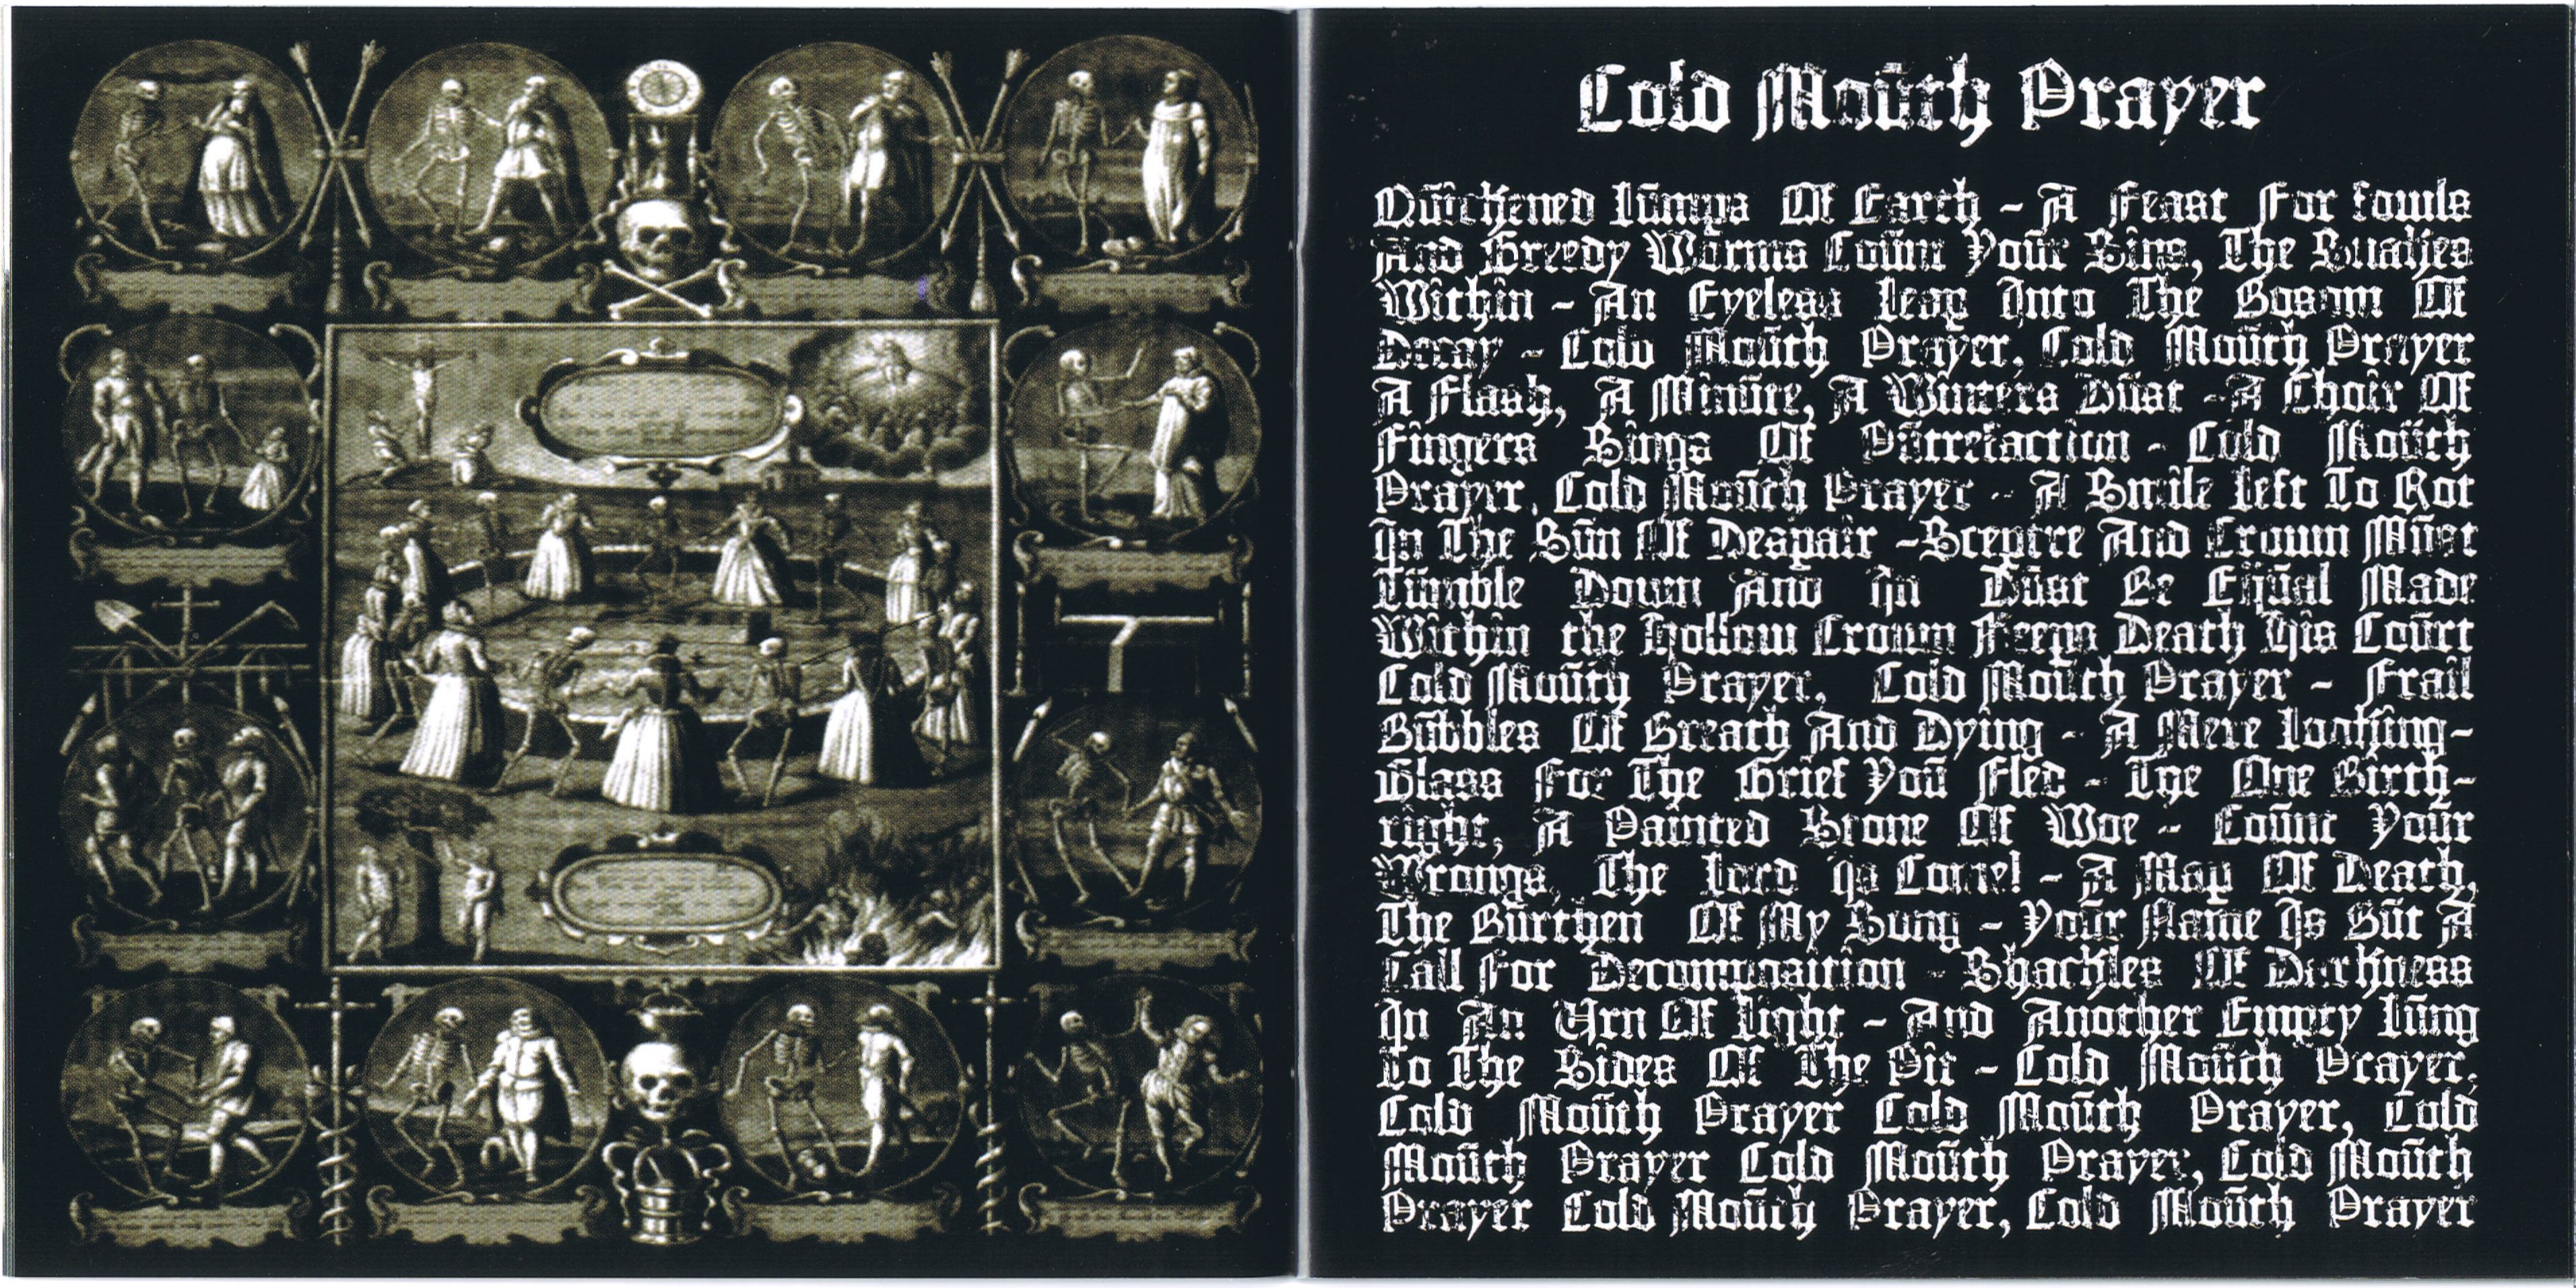 Cold Mouth Prayer
Quickened Lumps Of Earth - A Feast For Fowls
And Greedy Worms Count Your Sins, The Snakes
Within - An Eyeless Leap Into The Bosom Of
Decay - Cold Mouth Prayer, Cold Mouth Prayer
A Flash, A Minute, A Winters Dust - A Choir Of
Fingers Sings Of Putrefaction - Cold Mouth
Prayer, Cold Mouth Prayer - A Smile Left To Rot
In The Sun Of Despair -Sceptre And Crown Must
Tumble Down And In Dust Be Equal Made
Within the Hollow Crown Keeps Death His Court
Cold Mouth Prayer, Cold Mouth Prayer - Frail
Bubbles Of Breath And Dying - A Mere Looking-
Glass For The Grief You Fled - The One Birth-
right, A Painted Stone Of Woe - Count Your
Wrongs, The Lord Is Come! - A Map Of Death,
The Burthen Of My Song - Your Name Is But A
Call For Decomposition - Shackles Of Darkness
In An Urn Of Light - And Another Empty Lung
To The Sides Of The Pit - Cold Mouth Prayer,
Cold Mouth Prayer Cold Mouth Prayer, Cold
Mouth Prayer Cold Mouth Prayer, Cold Mouth
Prayer Cold Mouth Prayer, Cold Mouth Prayer